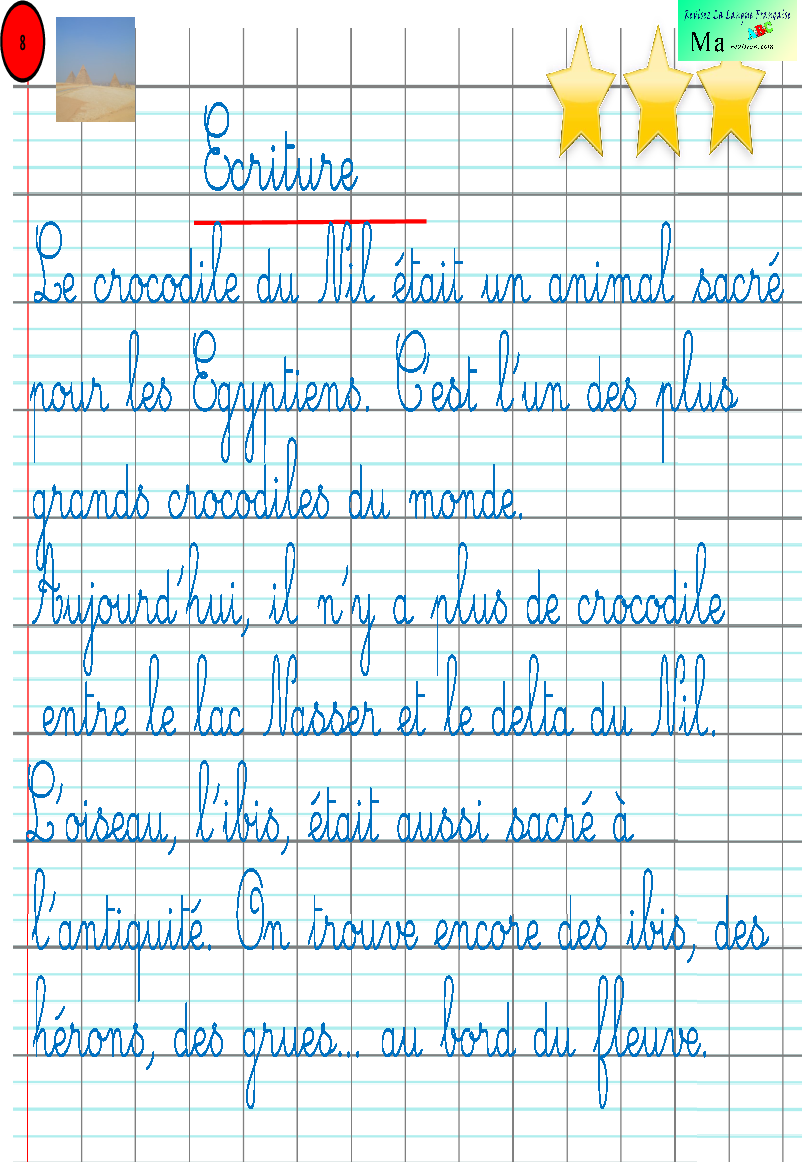 8
Revisez La Langue Française
ABC
Ma
Ecriture
Le crocodile du Nil était un animal sacré
pour les Egyptiens. C'est l'un des plus
grands crocodiles du monde.
Aujourd'hui, il n'y a plus de crocodile
entre le lac Nasser et le delta du Nil.
L'oiseau, l'ibis, était aussi sacré à
l'antiquité. On trouve encore des ibis, des
hérons, des grues... au bord du fleuve.